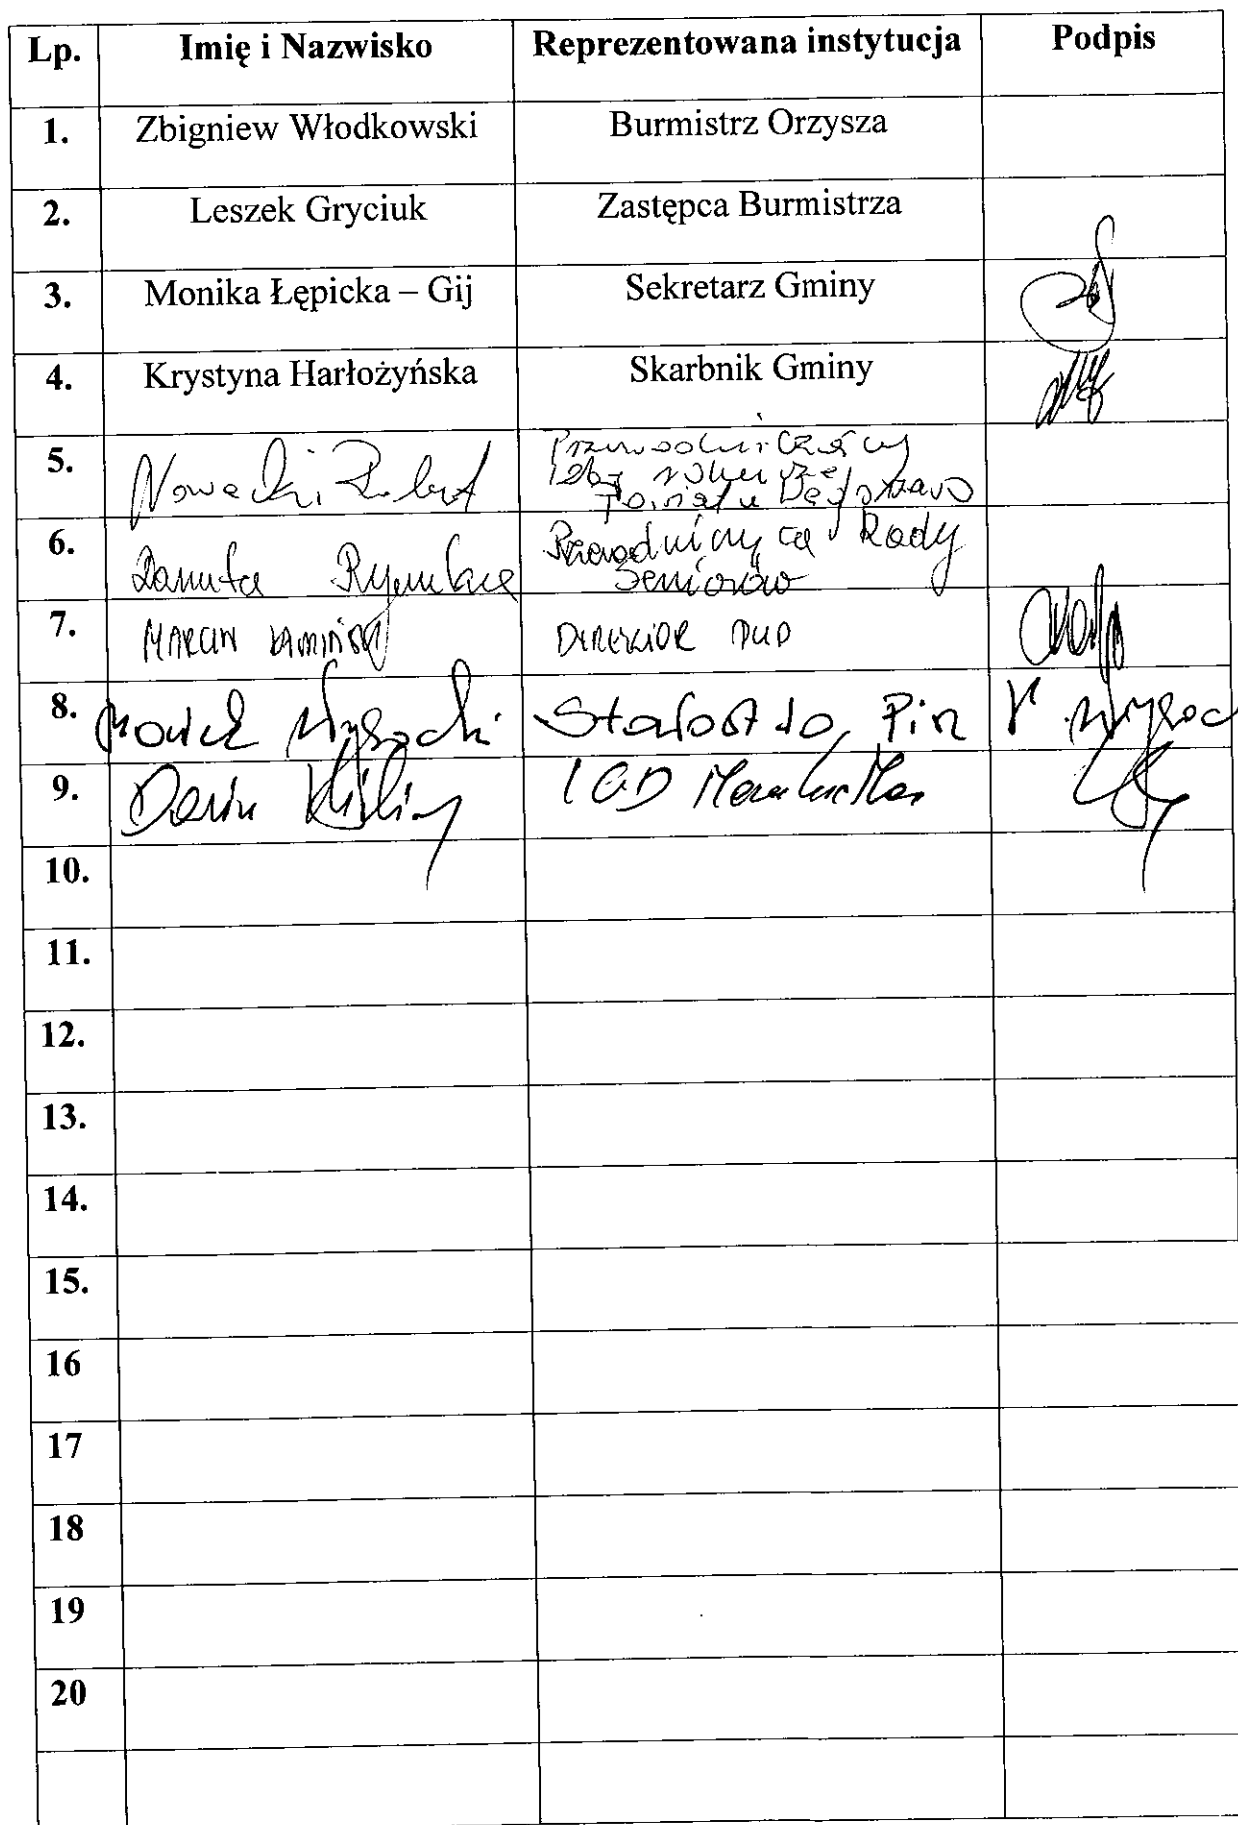 Lp. Imię i Nazwisko Reprezentowana instytucja Podpis
1. Zbigniew Włodkowski Burmistrz Orzysza
2. Leszek Gryciuk Zastępca Burmistrza
3. Monika Łępicka – Gij Sekretarz Gminy
4. Krystyna Harłożyńska Skarbnik Gminy
5. Nowacki Robert Przewodniczący
6. Danuta Przewodnicząca Rady
Seniorów
7. MARCIN KAMIŃSKI DYREKTOR PUP
8. Marek Wysocki Starostwo Pisz
9. LGD
10.
11.
12.
13.
14.
15.
16
17
18
19
20